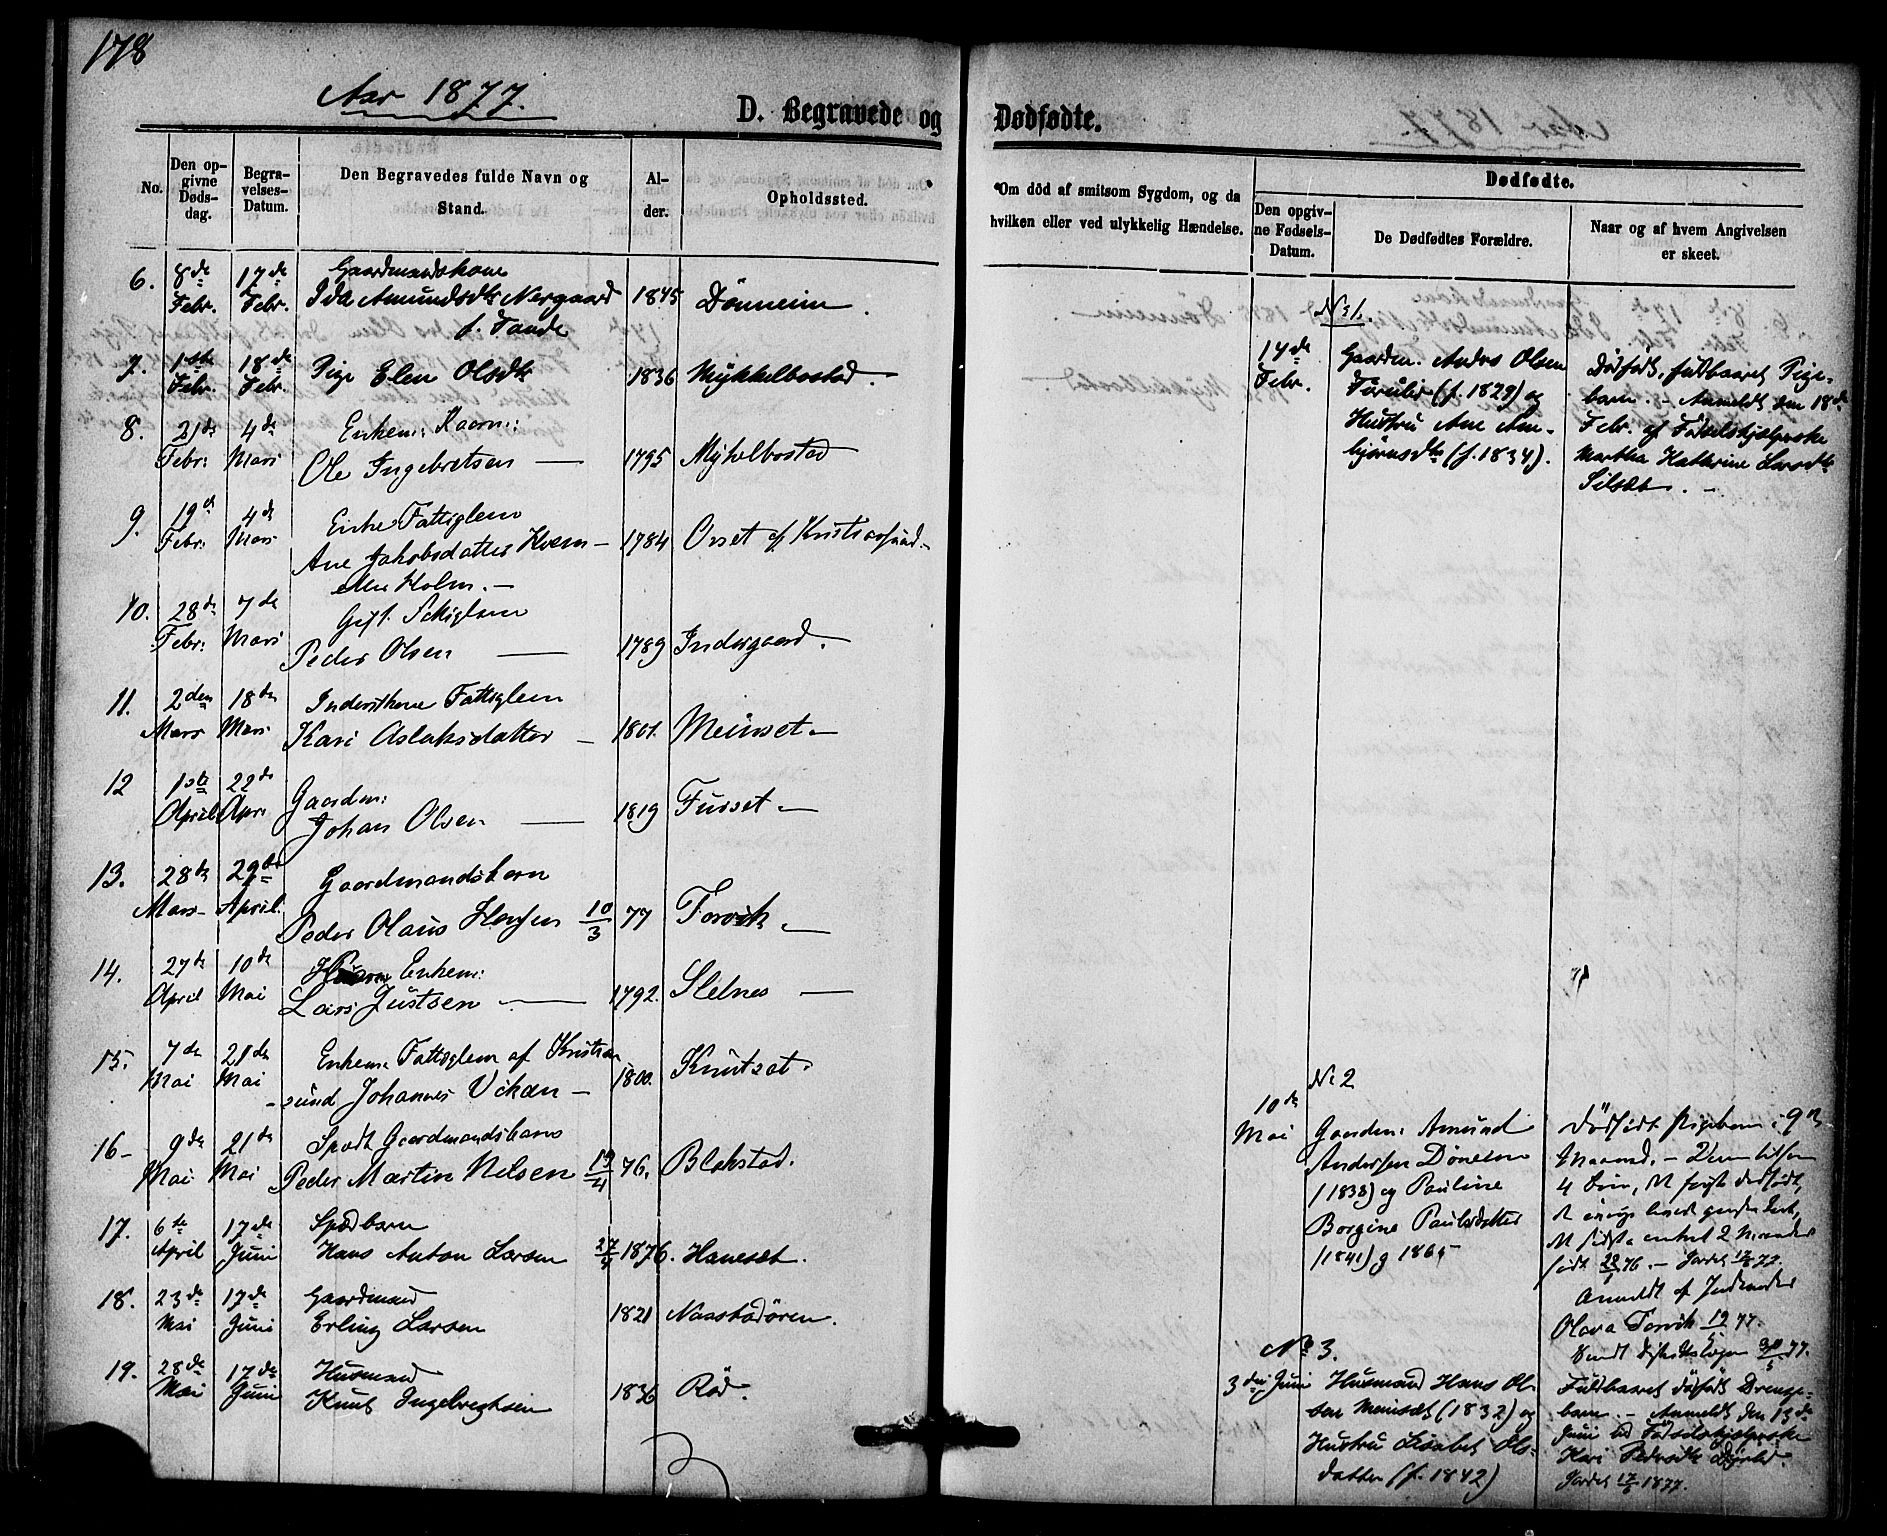 178
Aar 1877.
D. Begravede og
No.
Den op-
givne
Døds-
dag.
Begra-
velses-
Datum.
Den Begravedes fulde Navn og
Stand.
Al-
der.
Opholdssted.
6. 8de Febr. 17de Febr. Gaardmandskone
Ida Amundsdtr Nergaard 1845 Dönneim
f. Tande
7. 1ste Febr. 18de Febr. Pige Elen Olsdtr 1836 Mykkelbostad.
8. 21de Febr: 4de Mars Enkem: Kaarm:
Ole Ingebretsen — 1795 Mykelbostad
9. 19d Febr: 4de Mars Enke Fattiglem
Ane Jakobsdatter — 1784 Orset af Kristiansund
Holm. —
10. 28de Febr: 7de Mars Gift.
Peder Olsen — 1789 Indergaard.
11. 2den Mars 18de Mars Fattiglem
Kari Aslaksdatter — 1801. Meinset —
12 1ste April 22de Apr: Gaardm:
Johan Olsen — 1819 Furset —
13. 28de Mars 29de April Gaardmandsbarn
Peder Olaus 10/3 77 Torvik —
14. 27de April 10de Mai Enkem:
Lars Justsen — 1792. Stelnes —
15. 7de Mai 21de Mai Enkem. Fattiglem af Kristian
-sund Johannes Vikan — 1800. Knutset.
16- 9de Mai 21de Mai Spædt Gaardmandsbarn
Peder Martin Nelsen 19/4 76. Blakstad.
17. 6te April 17de Juni Spædbarn
Hans Anton Larsen 1876. Haneset.
18. 23de Mai 17de Juni Gaardmand
Erling Larsen 1821 Naastadören.
19. 28de Mai 17de Juni Husmand
Knut Ingebregtsen 1836 Röd.
Dødfødte.
Om död af smitsom Sygdom, og da
hvilken eller ved ulykkelig Hændelse.
Dødfødte.
Den opgiv-
ne Fødsels-
Datum.
De Dødfødtes Forældre.
Naar og af hvem Angivelsen
er skeet.
No 1.
14de Febr.
Gaardm. Andrs Olsen
(f. 1829) og
Hustru Ane Arn-
björnsdtr (f. 1834).
Dödfödt, fuldbaaret Pige-
barn. — Anmeldt den 18de
Febr. af Födselshjælperske
Martha Kathrine Larsdtr
Silset. —
No 2
10de Mai
Gaardm: Amund
Andersen Dönnem
(1838) og Pauline
Borgine Paulsdatter
(1841) g 1865
Dödfödt Pigebarn i 9de
Maaned. —
4 dödfödt,
2 Maaneder
födt 76. — 77.
Anmeldt af
Olava Torvik 19/5 77.
77.
No 3.
3die Juni
Husmand Hans Ol-
sen Meinset (1832) og
Hustru Lisabet Ols-
datter (f. 1842)
Fuldbaaret dödfödt Drenge-
barn. — Anmeldt den 13de
Juni ved Födselshjælperske
Kari Pedersdtr
Jordet 17/6 1877.